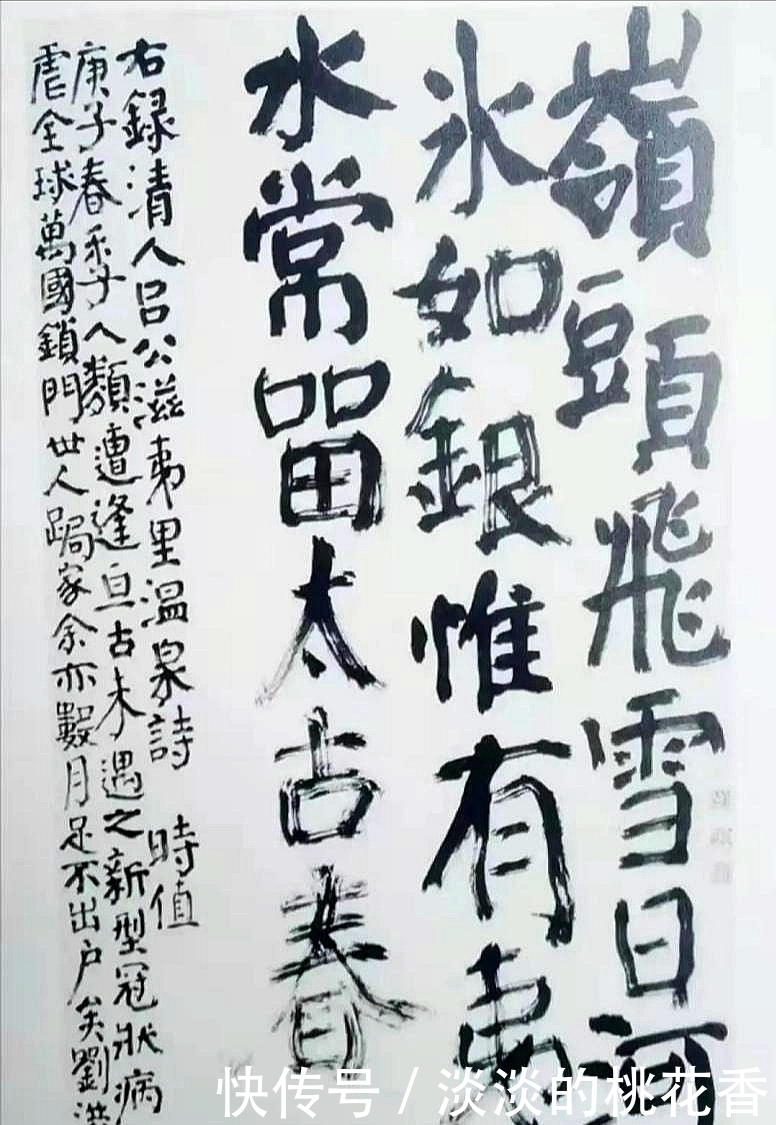 嶺頭飛雪日河
氷如銀惟有夷
水常畱太古春
右録清人吕公滋夷里温泉詩 時值
庚子春季人類遭逢亘古未遇之新型冠狀病
虐全球萬國鎖門世人跼家余亦數月足不出户矣劉洪
快传号 / 淡淡的桃花香